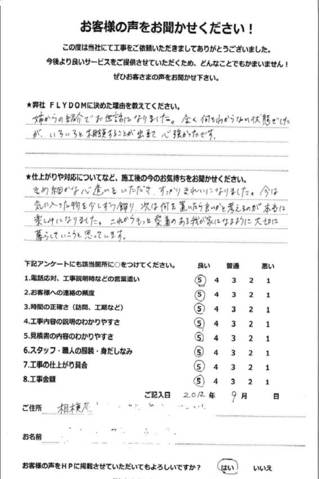 お客様の声をお聞かせください！
この度は当社にて工事をご依頼いただきましてありがとうございました。
今後より良いサービスをご提供させていただくため、どんなことでもかまいません！
ぜひお客さまの声をお聞かせ下さい。
★弊社 FLYDOMに決めた理由を教えてください。
姉からの紹介でお世話になりました。全く何もわからない状態でした
が、いろいろと相談することが出来て心強かったです。
★仕上がりや対応についてなど、施工後の今のお気持ちをお聞かせください。
きめ細かな心遣いをいただき、すっかりきれいになりました。今は
気に入った物を少しずつ飾り、次は何を置いたら良いかと考えるのが本当に
楽しみになりました。これからもっと愛着のある我が家になるように大切に
暮らしていこうと思っています。
下記アンケートにも該当箇所に○をつけてください。 良い 普通 悪い
1.電話応対、工事説明時などの言葉遣い 5 4 3 2 1
2.お客様への連絡の頻度 5 4 3 2 1
3.時間の正確さ（訪問、工期など） 5 4 3 2 1
4.工事内容の説明のわかりやすさ 5 4 3 2 1
5.見積書の内容のわかりやすさ 5 4 3 2 1
6.スタッフ・職人の服装・身だしなみ 5 4 3 2 1
7.工事の仕上がり具合 5 4 3 2 1
8.工事金額 5 4 3 2 1
ご記入日 2012 年 9 月 日
ご住所 相模原
お名前
お客様の声をＨＰに掲載させていただいてもよろしいですか？ はい いいえ